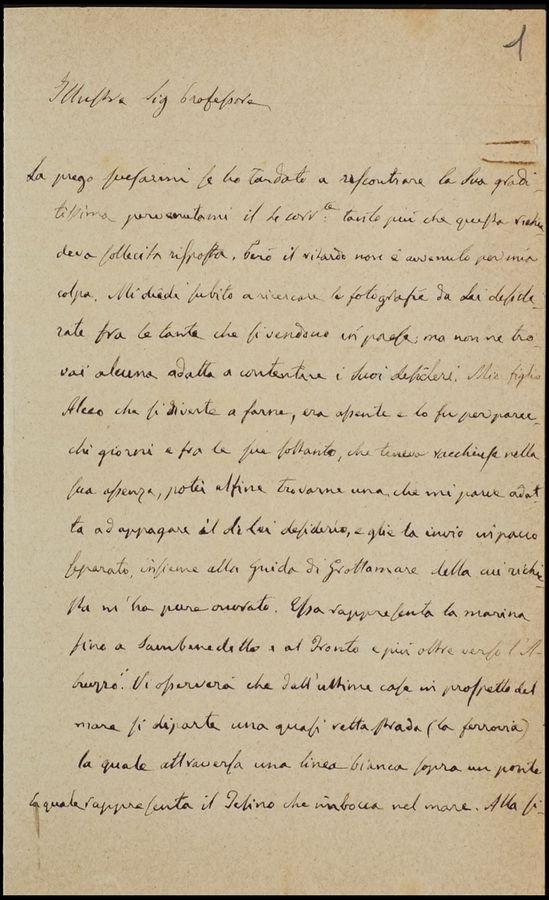 1
Illustre Sig Professore
La prego scusarmi se ho tardato a riscontrare la Sua gradi-
tissima pervenutami il 2 corr.te tanto più che questa richie-
deva sollecita risposta. Però il ritardo non è avvenuto per mia
colpa. Mi diedi subito a ricercare le fotografie da Lei deside-
rate fra le tante che si vendono in paese; ma non ne tro-
vai alcuna adatta a contentare i Suoi desideri. Mio figlio
Alceo che si diverte a farne, era assente e lo fu per parec-
chi giorni e fra le sue soltanto, che teneva racchiuse nella
sua assenza, potei alfine trovarne una, che mi parve adat-
ta ad appagare il di Lei desiderio, e glie la invio in pacco
separato, insieme alla Guida di Grottamare della cui richie-
sta m'ha pure onorato. Essa rappresenta la marina
fino a Sambenedetto e al Tronto e più oltre verso l'A-
bruzzo. Vi osserverà che dall'ultime case in prospetto del
mare si diparte una quasi retta strada (la ferrovia)
la quale attraversa una linea bianca sopra un ponte
la quale rappresenta il Tesino che imbocca nel mare. Alla si-